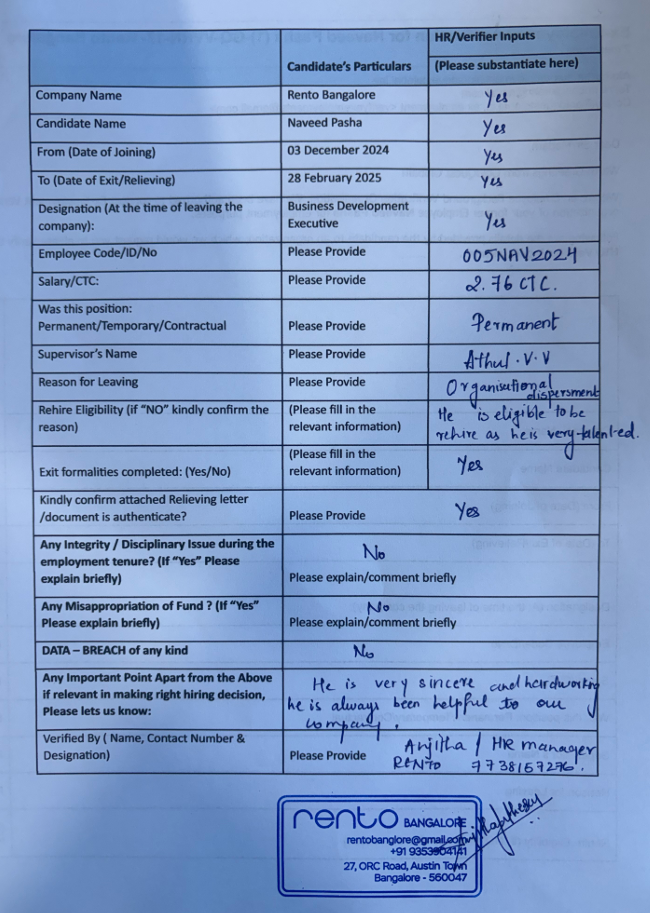 HR/Verifier Inputs
Candidate's Particulars
(Please substantiate here)
Company Name
Rento Bangalore
Yes
Candidate Name
Naveed Pasha
Yes
From (Date of Joining)
03 December 2024
Yes
To (Date of Exit/Relieving)
28 February 2025
Yes
Designation (At the time of leaving the
company):
Business Development
Executive
Yes
Employee Code/ID/No
Please Provide
005NAV2024
Salary/CTC:
Please Provide
2.76 CTC.
Was this position:
Permanent/Temporary/Contractual
Please Provide
Permanent
Supervisor's Name
Please Provide
Athul.V.V
Reason for Leaving
Please Provide
Organisational
dispersment
Rehire Eligibility (if "NO" kindly confirm the
reason)
(Please fill in the
relevant information)
He is eligible to be
rehire as he is very talented.
Exit formalities completed: (Yes/No)
(Please fill in the
relevant information)
Yes
Kindly confirm attached Relieving letter
/document is authenticate?
Please Provide
Yes
Any Integrity / Disciplinary Issue during the
employment tenure? (If "Yes" Please
explain briefly)
No
Please explain/comment briefly
Any Misappropriation of Fund ? (If "Yes"
Please explain briefly)
No
Please explain/comment briefly
DATA – BREACH of any kind
No
Any Important Point Apart from the Above
if relevant in making right hiring decision,
Please lets us know:
He is very sincere and hardworking
he is always been helpful to our
company.
Verified By ( Name, Contact Number &
Designation)
Please Provide
Anjitha / HR manager
RENTO 7738157276.
rento BANGALORE
rentobanglore@gmail.com
+91 9353904141
27, ORC Road, Austin Town
Bangalore - 560047